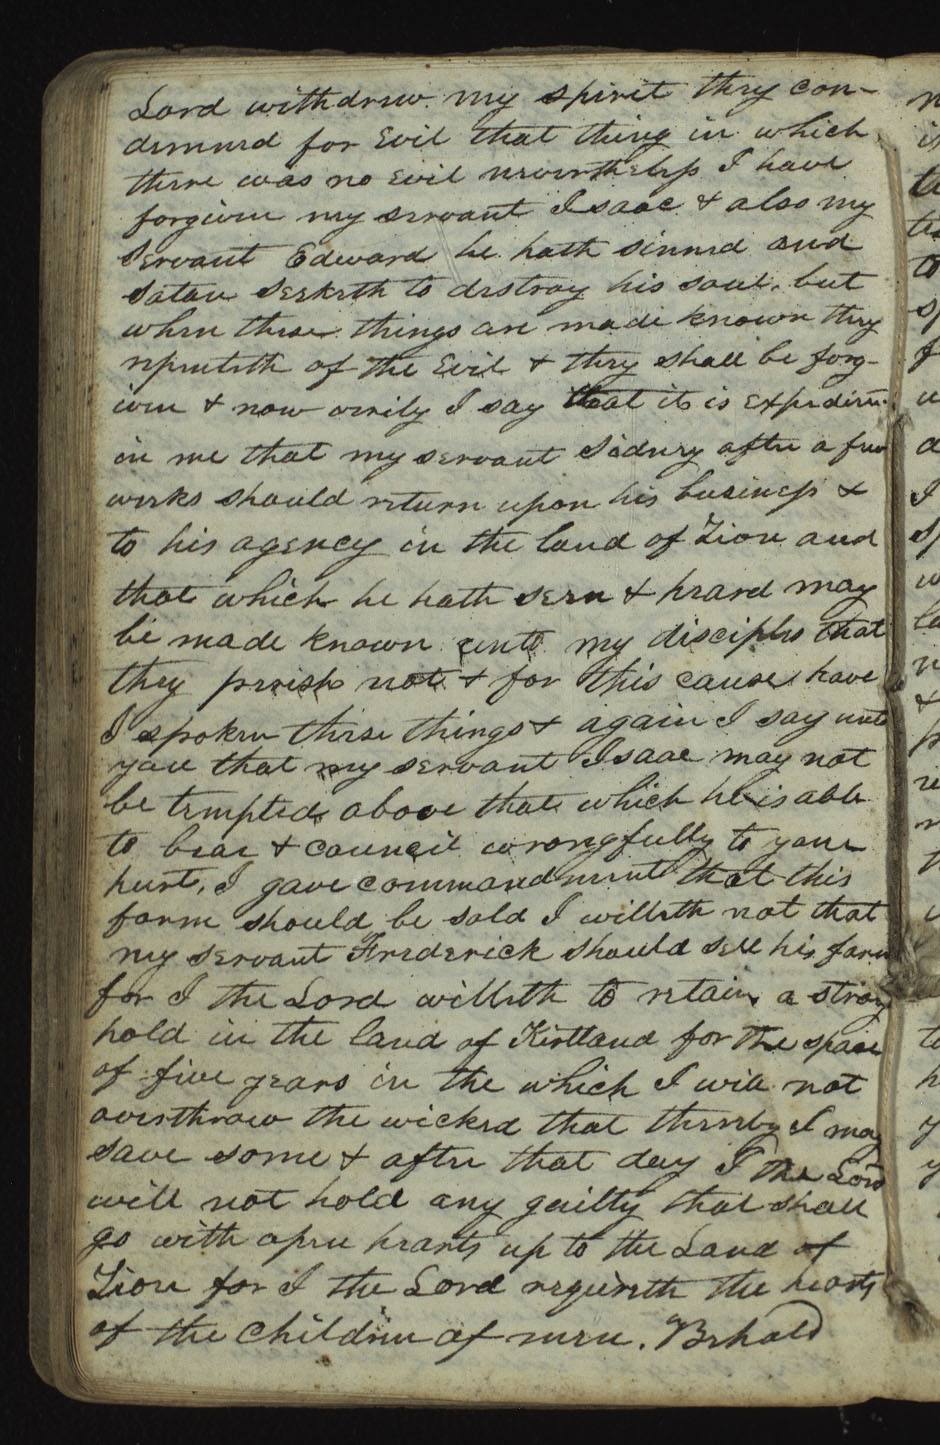 Lord withdrew my spirit they con-
demned for Evil that thing in which
there was no evil nevertheless I have
forgiven my servant Isaac & also my
Servant Edward he hath sinned and
Satan seeketh to destroy his soul. but
when these things are made known they
repenteth of the Evil & they shall be forg-
iven & now verily I say that it is expedient
in me that my servant Sidney after a few
weeks should return upon his business &
to his agency in the land of Zion and
that which he hath seen & heard may
be made known unto my disciples that
they perish not & for this cause have
I spoken these things & again I say unto
you that my servant Isaac may not
be tempted above that which he is able
to bear & council wrongfully to your
hurt, I gave commandment that this
farm should be sold I willeth not that
my servant Frederick should sell his farm
for I the Lord willeth to retain a strong
hold in the land of Kirtland for the space
of five years in the which I will not
overthrow the wicked that thereby I may
save some & after that day I the Lord
will not hold any guilty that shall
go with open hearts up to the Land of
Zion for I the Lord requireth the hearts
of the children of men. Behold